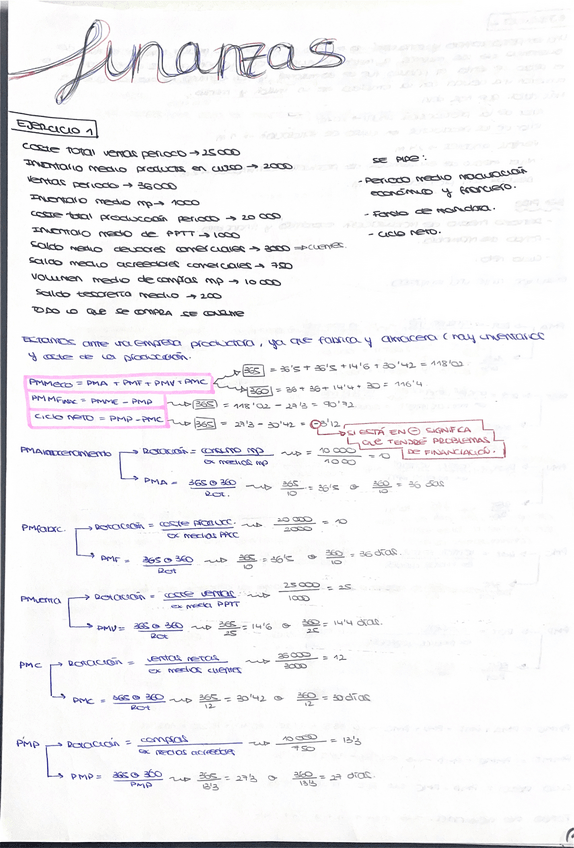 finanzas
EJERCICIO 1
COSTE TOTAL VENTAS PERIODO → 25000
INVENTARIO MEDIO PRODUCTOS EN CURSO → 2000
VENTAS PERIODO → 36000
INVENTARIO MEDIO MP → 1000
COSTE TOTAL PRODUCCIÓN PERIODO → 20 000
INVENTARIO MEDIO DE PPTT → 1000
SALDO MEDIO DEUDORES COMERCIALES → 3000 ⇒ CLIENTES.
SALDO MEDIO ACREEDORES COMERCIALES → 750
VOLUMEN MEDIO DE COMPRAS MP → 10 000
SALDO TESORERÍA MEDIO → 200
TODO LO QUE SE COMPRA SE CONSUME
SE PIDE:
- PERIODO MEDIO MADURACIÓN
ECONÓMICO Y FINANCIERO.
- FONDO DE MANIOBRA.
- CICLO NETO.
ESTAMOS ANTE UNA EMPRESA PRODUCTORA, YA QUE FABRICA Y ALMACENA (HAY INVENTARIOS
Y COSTE DE LA PRODUCCIÓN.
PMMECO = PMA + PMF + PMV + PMC
→ 365 = 36'5 + 36'5 + 14'6 + 30'42 = 118'02
→ 360 = 36 + 36 + 14'4 + 30 = 116'4
PMMFINAC = PMME - PMP → 365 = 118'02 - 27'3 = 90'72
CICLO NETO = PMP - PMC → 365 = 27'3 - 30'42 = -3'12
→ SI ESTÁ EN ⊖ SIGNIFICA
QUE TENDRÉ PROBLEMAS
DE FINANCIACIÓN.
PMAlmacenamiento → ROTACIÓN = CONSUMO MP / EX MEDIAS MP ⇝ = 10 000 / 1000 = 10
→ PMA = 365 o 360 / ROT. ⇝ 365 / 10 = 36'5 o 360 / 10 = 36 DÍAS
PMFABRIC. → ROTACIÓN = COSTE PRODUCC. / EX MEDIAS PPCC ⇝ 20 000 / 2000 = 10
→ PMF = 365 o 360 / ROT ⇝ 365 / 10 = 36'5 o 360 / 10 = 36 DÍAS.
PMVENTA → ROTACIÓN = COSTE VENTAS / EX MEDIA PPTT ⇝ 25 000 / 1000 = 25
→ PMV = 365 o 360 / ROT ⇝ 365 / 25 = 14'6 o 360 / 25 = 14'4 DÍAS.
PMC → ROTACIÓN = VENTAS NETAS / EX MEDIAS CLIENTES ⇝ 36000 / 3000 = 12
→ PMC = 365 o 360 / ROT ⇝ 365 / 12 = 30'42 o 360 / 12 = 30 DÍAS
PMP → ROTACIÓN = COMPRAS / EX MEDIAS ACREEDOR. ⇝ 10 000 / 750 = 13'3
→ PMP = 365 o 360 / PMP ⇝ 365 / 13'3 = 27'3 o 360 / 13'3 = 27 DÍAS.